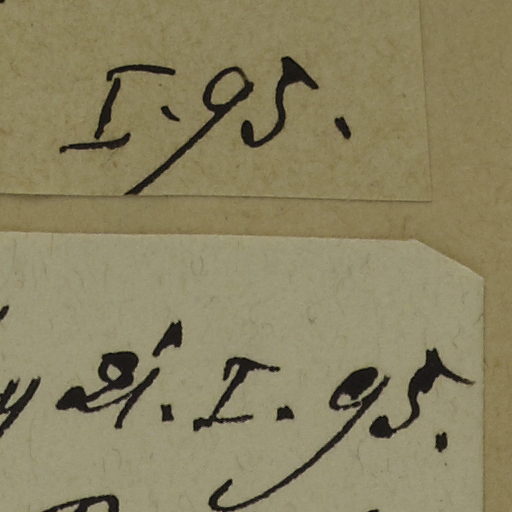 I. 95.
21. I. 95.